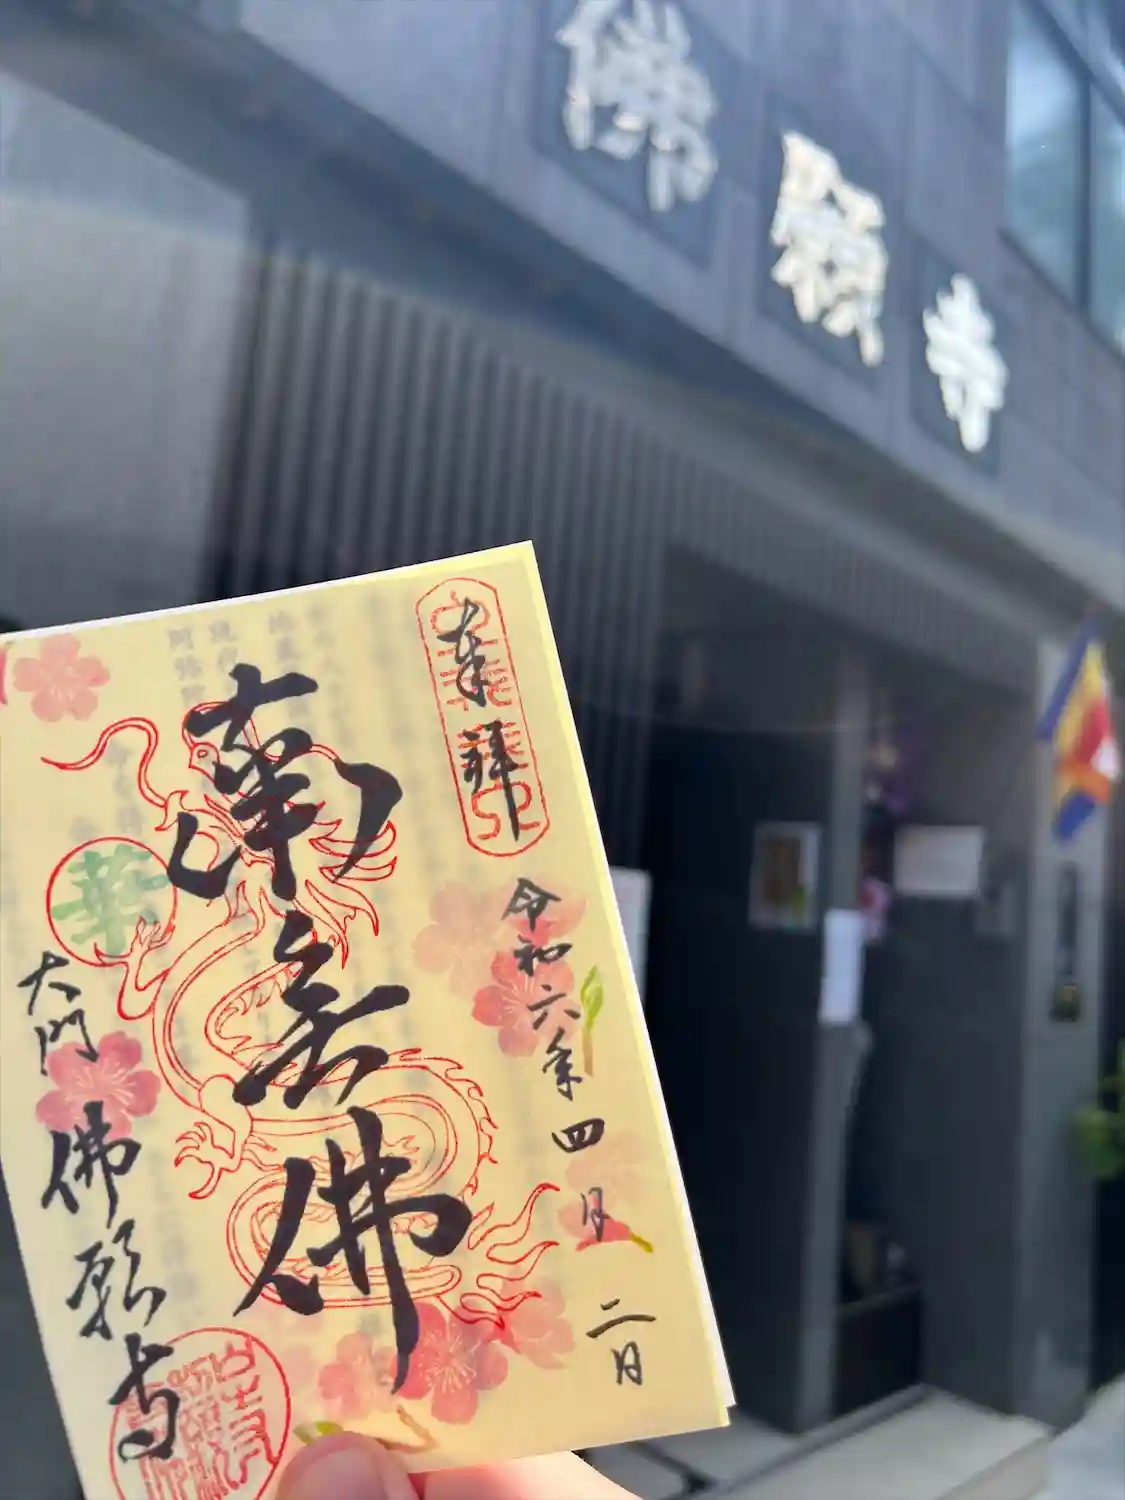 佛願寺
奉拝
令和六年四月二日
南無佛
華
大門
佛願寺